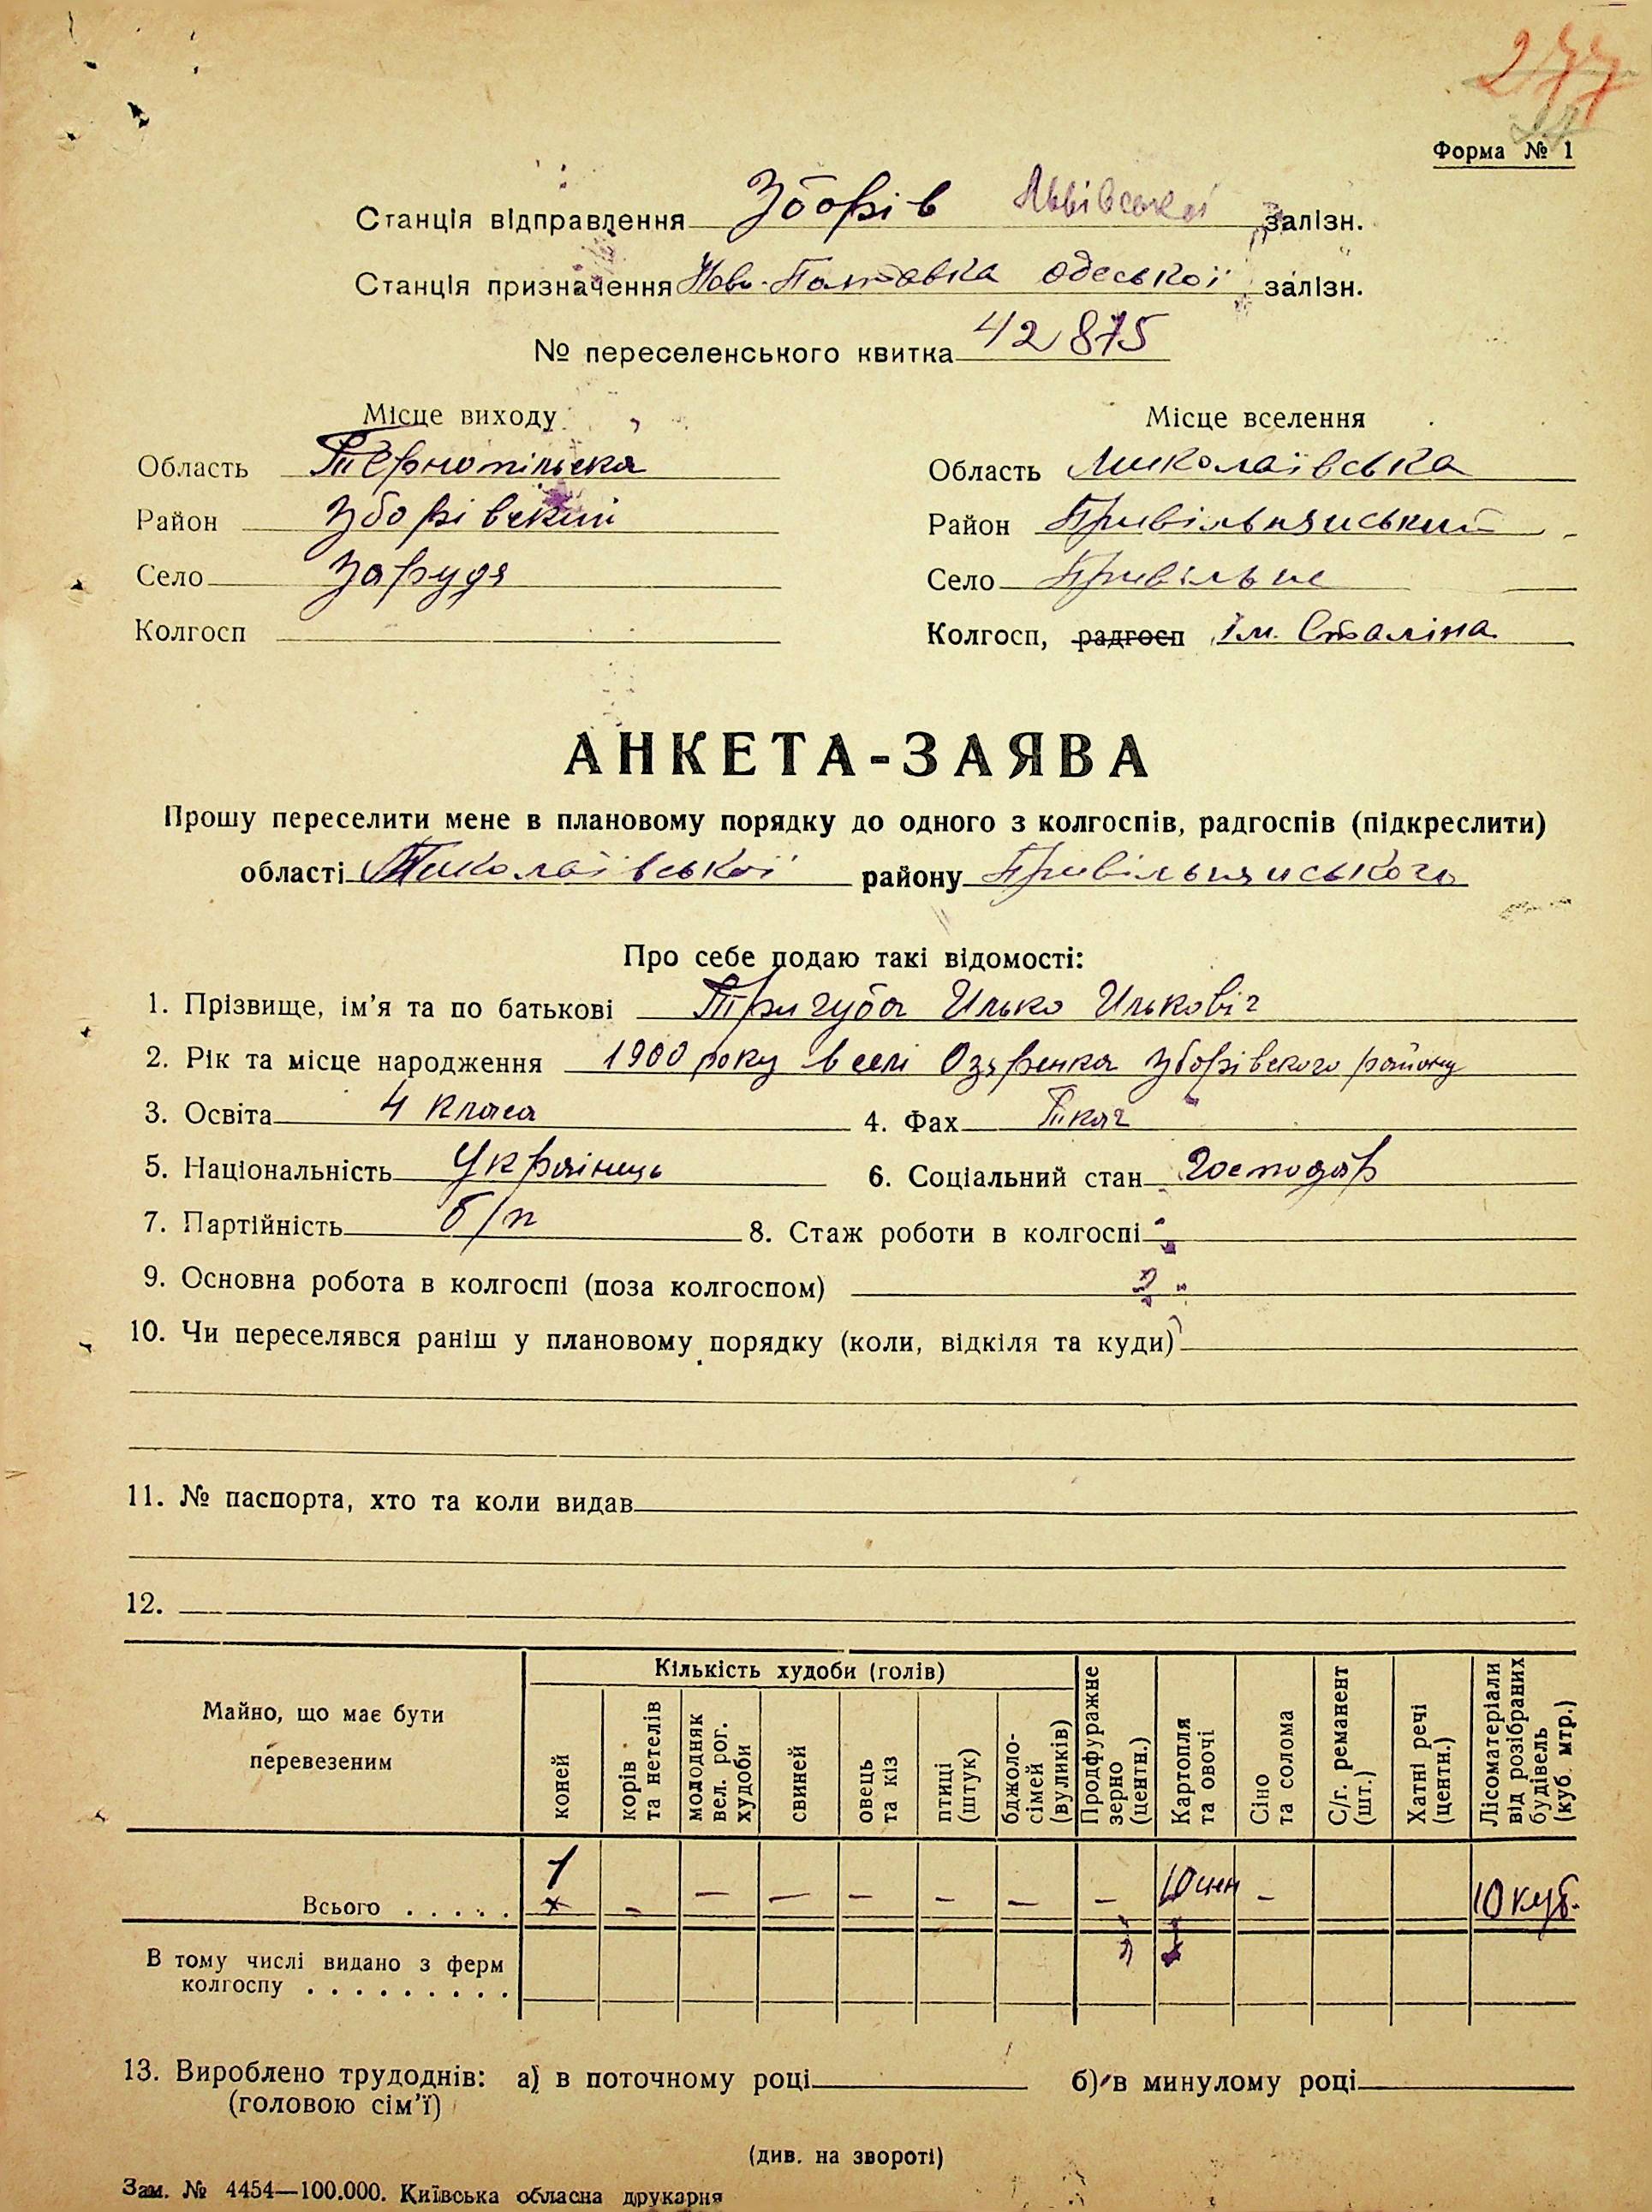 277
Форма № 1
Станція відправлення Зборів Львівської залізн.
Станція призначення Ново-Полтавка Одеської залізн.
№ переселенського квитка 42875
Місце виходу
Місце вселення
Область Тернопільска
Область Миколаївська
Район Зборівский
Район Привільнянський
Село Зарудя
Село Привільне
Колгосп
Колгосп, радгосп ім. Сталіна
АНКЕТА-ЗАЯВА
Прошу переселити мене в плановому порядку до одного з колгоспів, радгоспів (підкреслити)
області Миколаївської району Привільнянського
Про себе подаю такі відомості:
1. Прізвище, ім’я та по батькові Тригуба Илько Илькович
2. Рік та місце народження 1900 року в селі Озяренка Зборівского району
3. Освіта 4 класа
4. Фах Ткач
5. Національність Українець
6. Соціальний стан господар
7. Партійність б/п
8. Стаж роботи в колгоспі
9. Основна робота в колгоспі (поза колгоспом)
10. Чи переселявся раніш у плановому порядку (коли, відкіля та куди)
11. № паспорта, хто та коли видав
12.
Майно, що має бути перевезеним
Кількість худоби (голів)
коней
корів та нетелів
молодняк вел. рог. худоби
свиней
овець та кіз
птиці (штук)
бджоло-сімей (вуликів)
Продфуражне зерно (центн.)
Картопля та овочі
Сіно та солома
С/г. реманент (шт.)
Хатні речі (центн.)
Лісоматеріали від розібраних будівель (куб. мтр.)
Всього . . . . . 1 – – – – – – – 10 цнн – 10 куб.
В тому числі видано з ферм
колгоспу . . . . . . . . .
13. Вироблено трудоднів: а) в поточному році б) в минулому році
(головою сім’ї)
(див. на звороті)
Зам. № 4454—100.000. Київська обласна друкарня